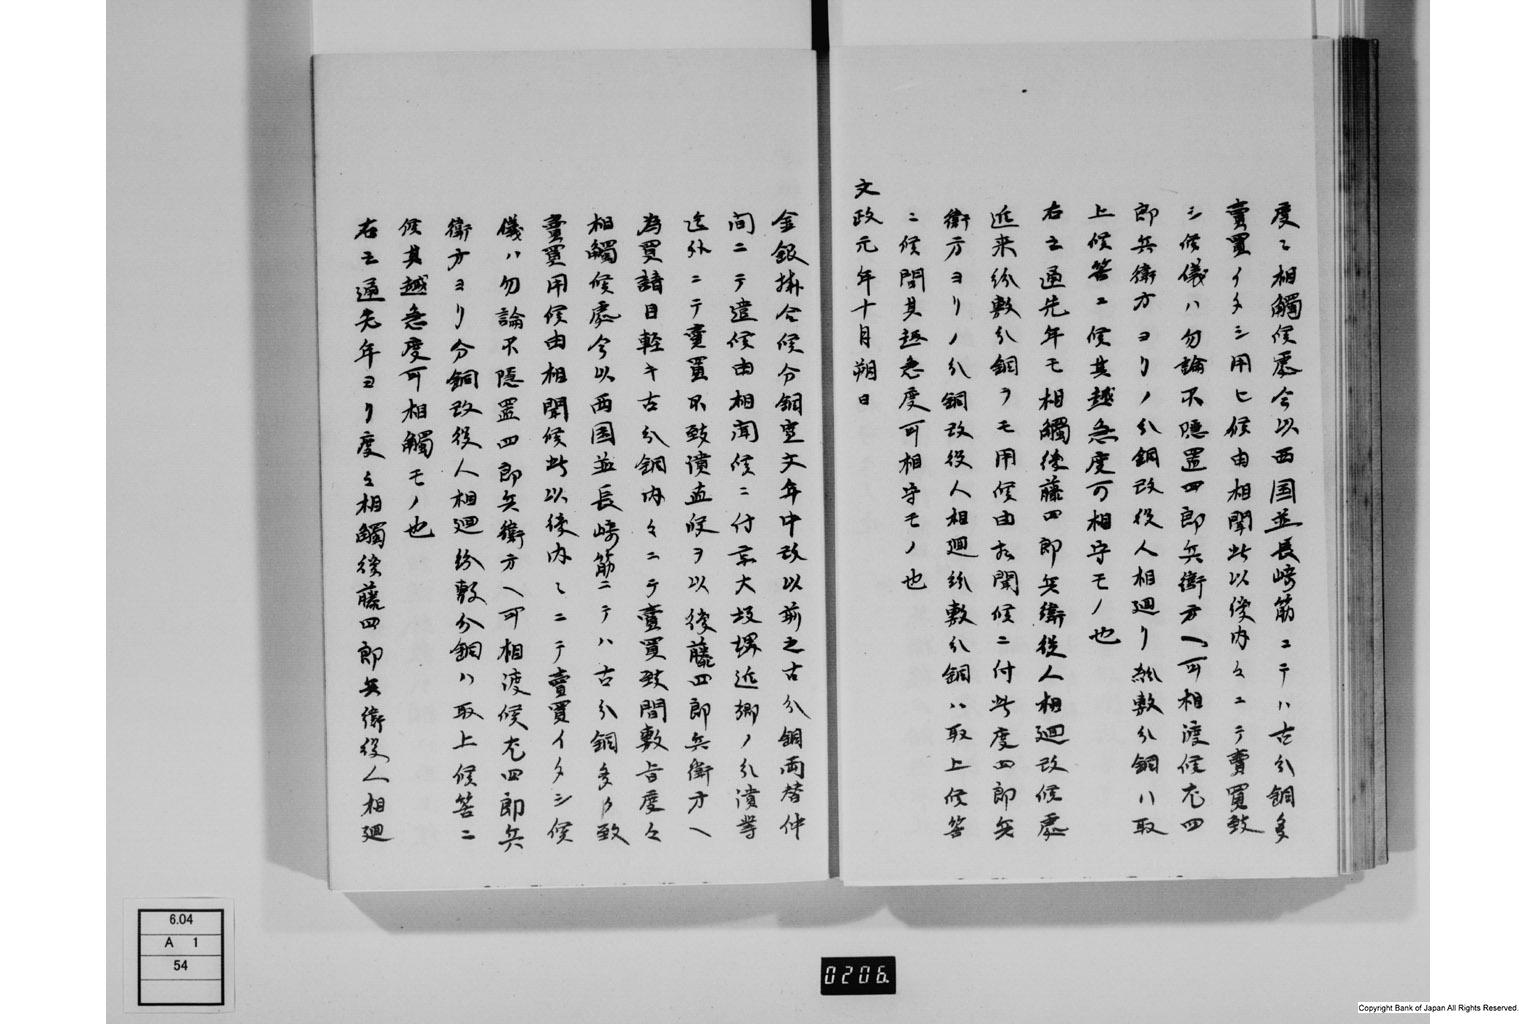 度々相觸候處今以西国並長崎筋ニテハ古分銅多
賣買イタシ用ヒ候由相聞此以後内々ニテ賣買致
シ候儀ハ勿論不隠置四郎兵衛方ヘ可相渡候尤四
郎兵衛方ヨリノ分銅改役人相廻リ紛敷分銅ハ取
上候筈ニ候其越急度可相守モノ也
右之通先年モ相觸後藤四郎兵衛從人相廻改候處
近来紛敷分銅ヲモ用候由相聞候ニ付此度四郎兵
衛方ヨリノ分銅改役人相廻紛敷分銅ハ取上候筈
ニ候間其趣急度可相守モノ也
文政元年十月朔日
金銀掛合候分銅寛文年中改以前之古分銅両替仲
間ニテ遣候由相聞候ニ付京大坂堺近郷ノ分潰等
迄外ニテ賣買不致潰直段ヲ以後藤四郎兵衛方ヘ
為買請目軽キ古分銅内々ニテ賣買致間敷旨度々
相觸候處今以西国並長崎筋ニテハ古分銅多ク致
賣買用候由相聞候此以後内々ニテ賣買イタシ候
儀ハ勿論不隠置四郎兵衛方ヘ可相渡候尤四郎兵
衛方ヨリ分銅改役人相廻紛敷分銅ハ取上候筈ニ
候其越急度可相觸モノ也
右之通先年ヨリ度々相觸後藤四郎兵衛役人相廻
6.04
A 1
54
0206
Copyright Bank of Japan All Rights Reserved.